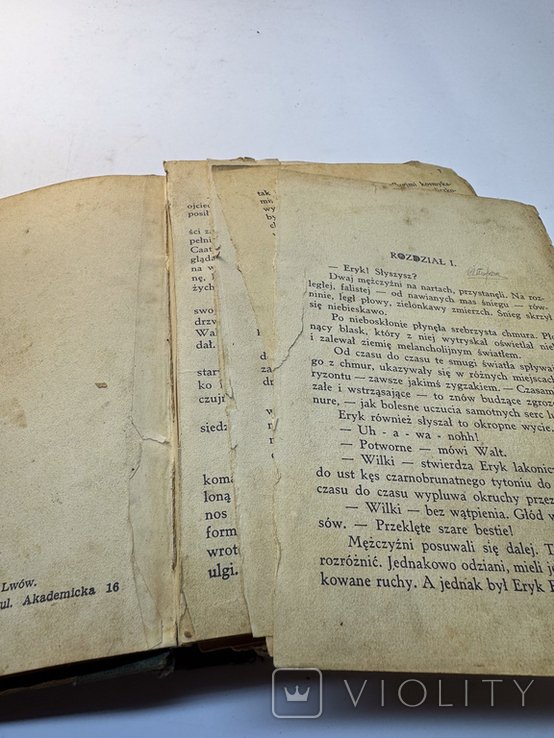 Lwów.
ul. Akademicka 16
ojciec
posił
ści za
pełni
Caat
gląda
na w
nę,
żych
swoj
drzw
Wal
dał.
star
ko
czujn
siedz
koma
loną
nos
form
wrot
ulgi.
tak
mn
wy
był
dz
ROZDZIAŁ I.
— Eryk! Słyszysz?
Dwaj mężczyźni na nartach, przystanęli. Na roz-
ległej, falistej — od nawianych mas śniegu — rów-
ninie, legł płowy, zielonkawy zmierzch. Śnieg skrzył
się niebieskawo.
Po nieboskłonie płynęła srebrzysta chmura. Pło
nący blask, który z niej wytryskał oświetlał nieb
i zalewał ziemię melancholijnym światłem.
Od czasu do czasu te smugi światła spływa
go z chmur, ukazywały się w różnych miejscac
ryzontu — zawsze jakimś zygzakiem. Czasam
załe i wstrząsające — to znów budzące zgroz
nure, — jak bolesne uczucia samotnych serc l
Eryk również słyszał to okropne wycie.
— Uh - a - wa - nohh!
— Potworne — mówi Walt.
— Wilki — stwierdza Eryk lakonic
do ust kęs czarnobrunatnego tytoniu do
czasu do czasu wypluwa okruchy przez
— Wilki — bez wątpienia. Głód w
sów. — Przeklęte szare bestie!
Mężczyźni posuwali się dalej. T
rozróżnić. Jednakowo odziani, mieli je
kowane ruchy. A jednak był Eryk
VIOLITY